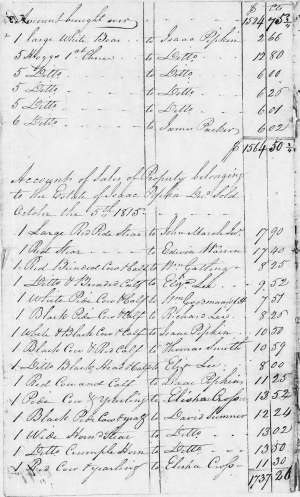 $ Cts
Amount brought over 1524 75 3/4
1 Large White Boar to Isaac Pipkin 2 66
5 Hoggs 1st Choice to Ditto 12 80
5 Ditto to Ditto 6 00
5 Ditto to Ditto 6 25
5 Ditto to Ditto 6 01
6 Ditto to James Parker 6 02
$ 1564 50 1/2
Account of Sales of Property belonging
to the Estate of Isaac Pipkin Decd Sold
October the 5th 1815
1 Large Red Pide Stear to John March 17 90
1 Red Stear to Edwin 17 40
1 Red Brindled Cow & Calf to Wm Gatling 8 25
1 Ditto & Brindled Calf to Eliza Lee 9 52
1 White Pide Cow & Calf to Wm 7 51
1 Black Pide Cow & Calf to Richard Lee 8 25
1 White & Black Cow & Calf to Isaac Pipkin 10 50
1 Black Cow & Red Calf to Thomas Smith 10 59
1 Ditto Black Head & Calf to Eliza Lee 8 00
1 Red Cow and Calf to Isaac Pipkins 11 25
1 Pide Cow & Yearling to Elisha Cross 13 52
1 Black Pide Cow & yearling to David Sumner 12 24
1 Wide Horn'd Stear to Ditto 13 02
1 Ditto Crumple Horn to Ditto 13 50
1 Red Cow & yearling to Elisha Cross 11 30
1737 26